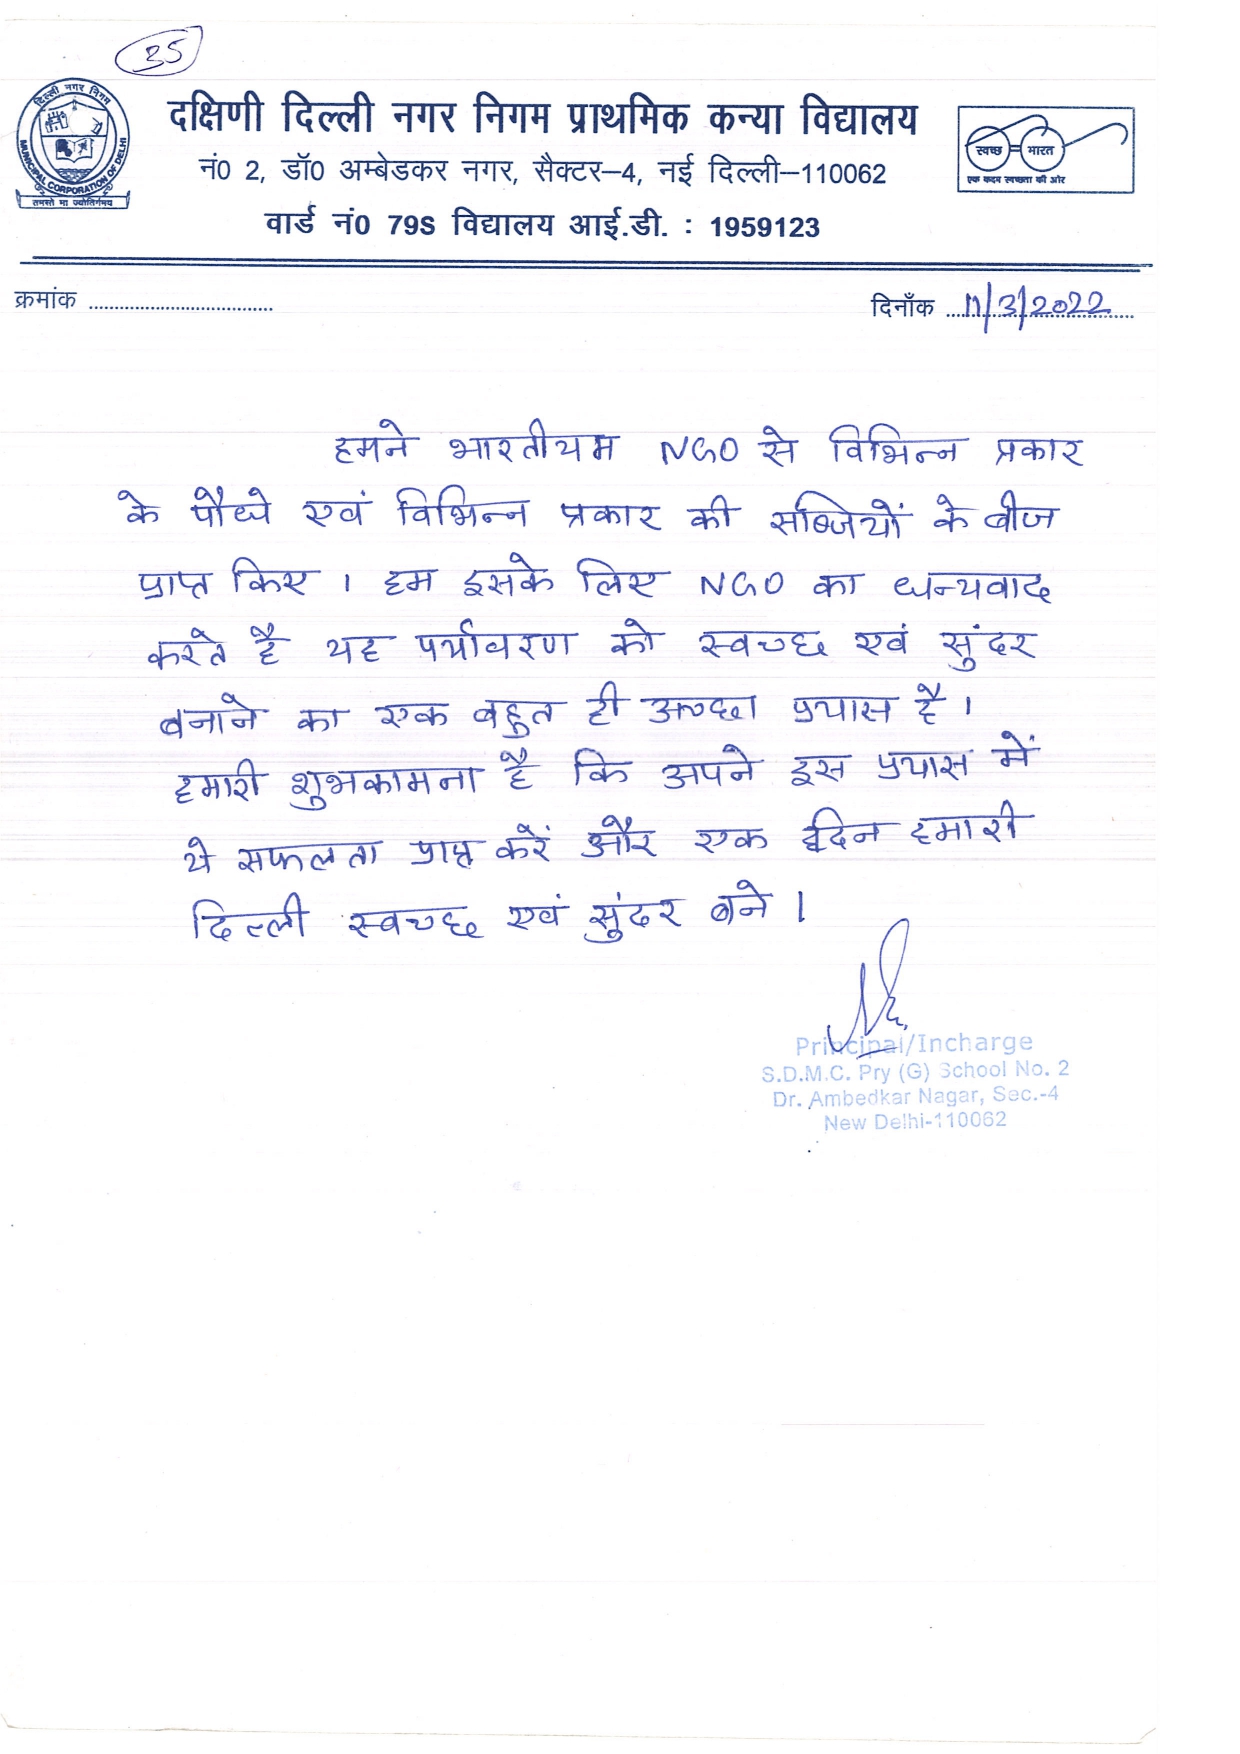 35
दिल्ली नगर निगम
MUNICIPAL CORPORATION OF DELHI
तमसो मा ज्योतिर्गमय
दक्षिणी दिल्ली नगर निगम प्राथमिक कन्या विद्यालय
स्वच्छ भारत
एक कदम स्वच्छता की ओर
नं0 2, डॉ0 अम्बेडकर नगर, सैक्टर–4, नई दिल्ली–110062
वार्ड नं0 79S विद्यालय आई.डी. : 1959123
क्रमांक ....................................
दिनाँक 11/3/2022
हमने भारतीयम NGO से विभिन्न प्रकार
के पौधे एवं विभिन्न प्रकार की सब्जियों के बीज
प्राप्त किए । हम इसके लिए NGO का धन्यवाद
करते है यह पर्यावरण को स्वच्छ एवं सुंदर
बनाने का एक बहुत ही अच्छा प्रयास है ।
हमारी शुभकामना है कि अपने इस प्रयास में
ये सफलता प्राप्त करें और एक दिन हमारी
दिल्ली स्वच्छ एवं सुंदर बने ।
Principal/Incharge
S.D.M.C. Pry (G) School No. 2
Dr. Ambedkar Nagar, Sec.-4
New Delhi-110062